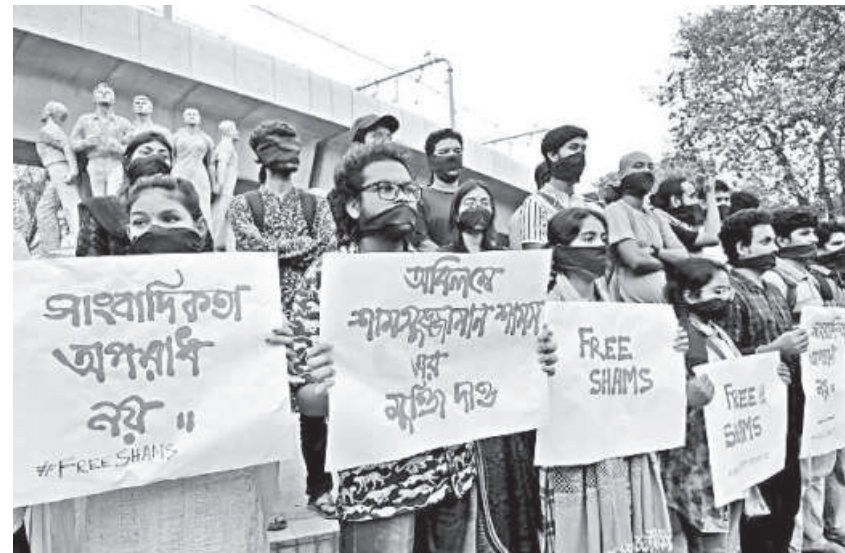 সাংবাদিকতা
অপরাধ
নয় ॥
#FREESHAMS
অবিলম্বে
শামসুজ্জামান শামস
এর
মুক্তি দাও
FREE
SHAMS
FREE
SHAMS
সাংবাদিকতা
অপরাধ
নয় ॥